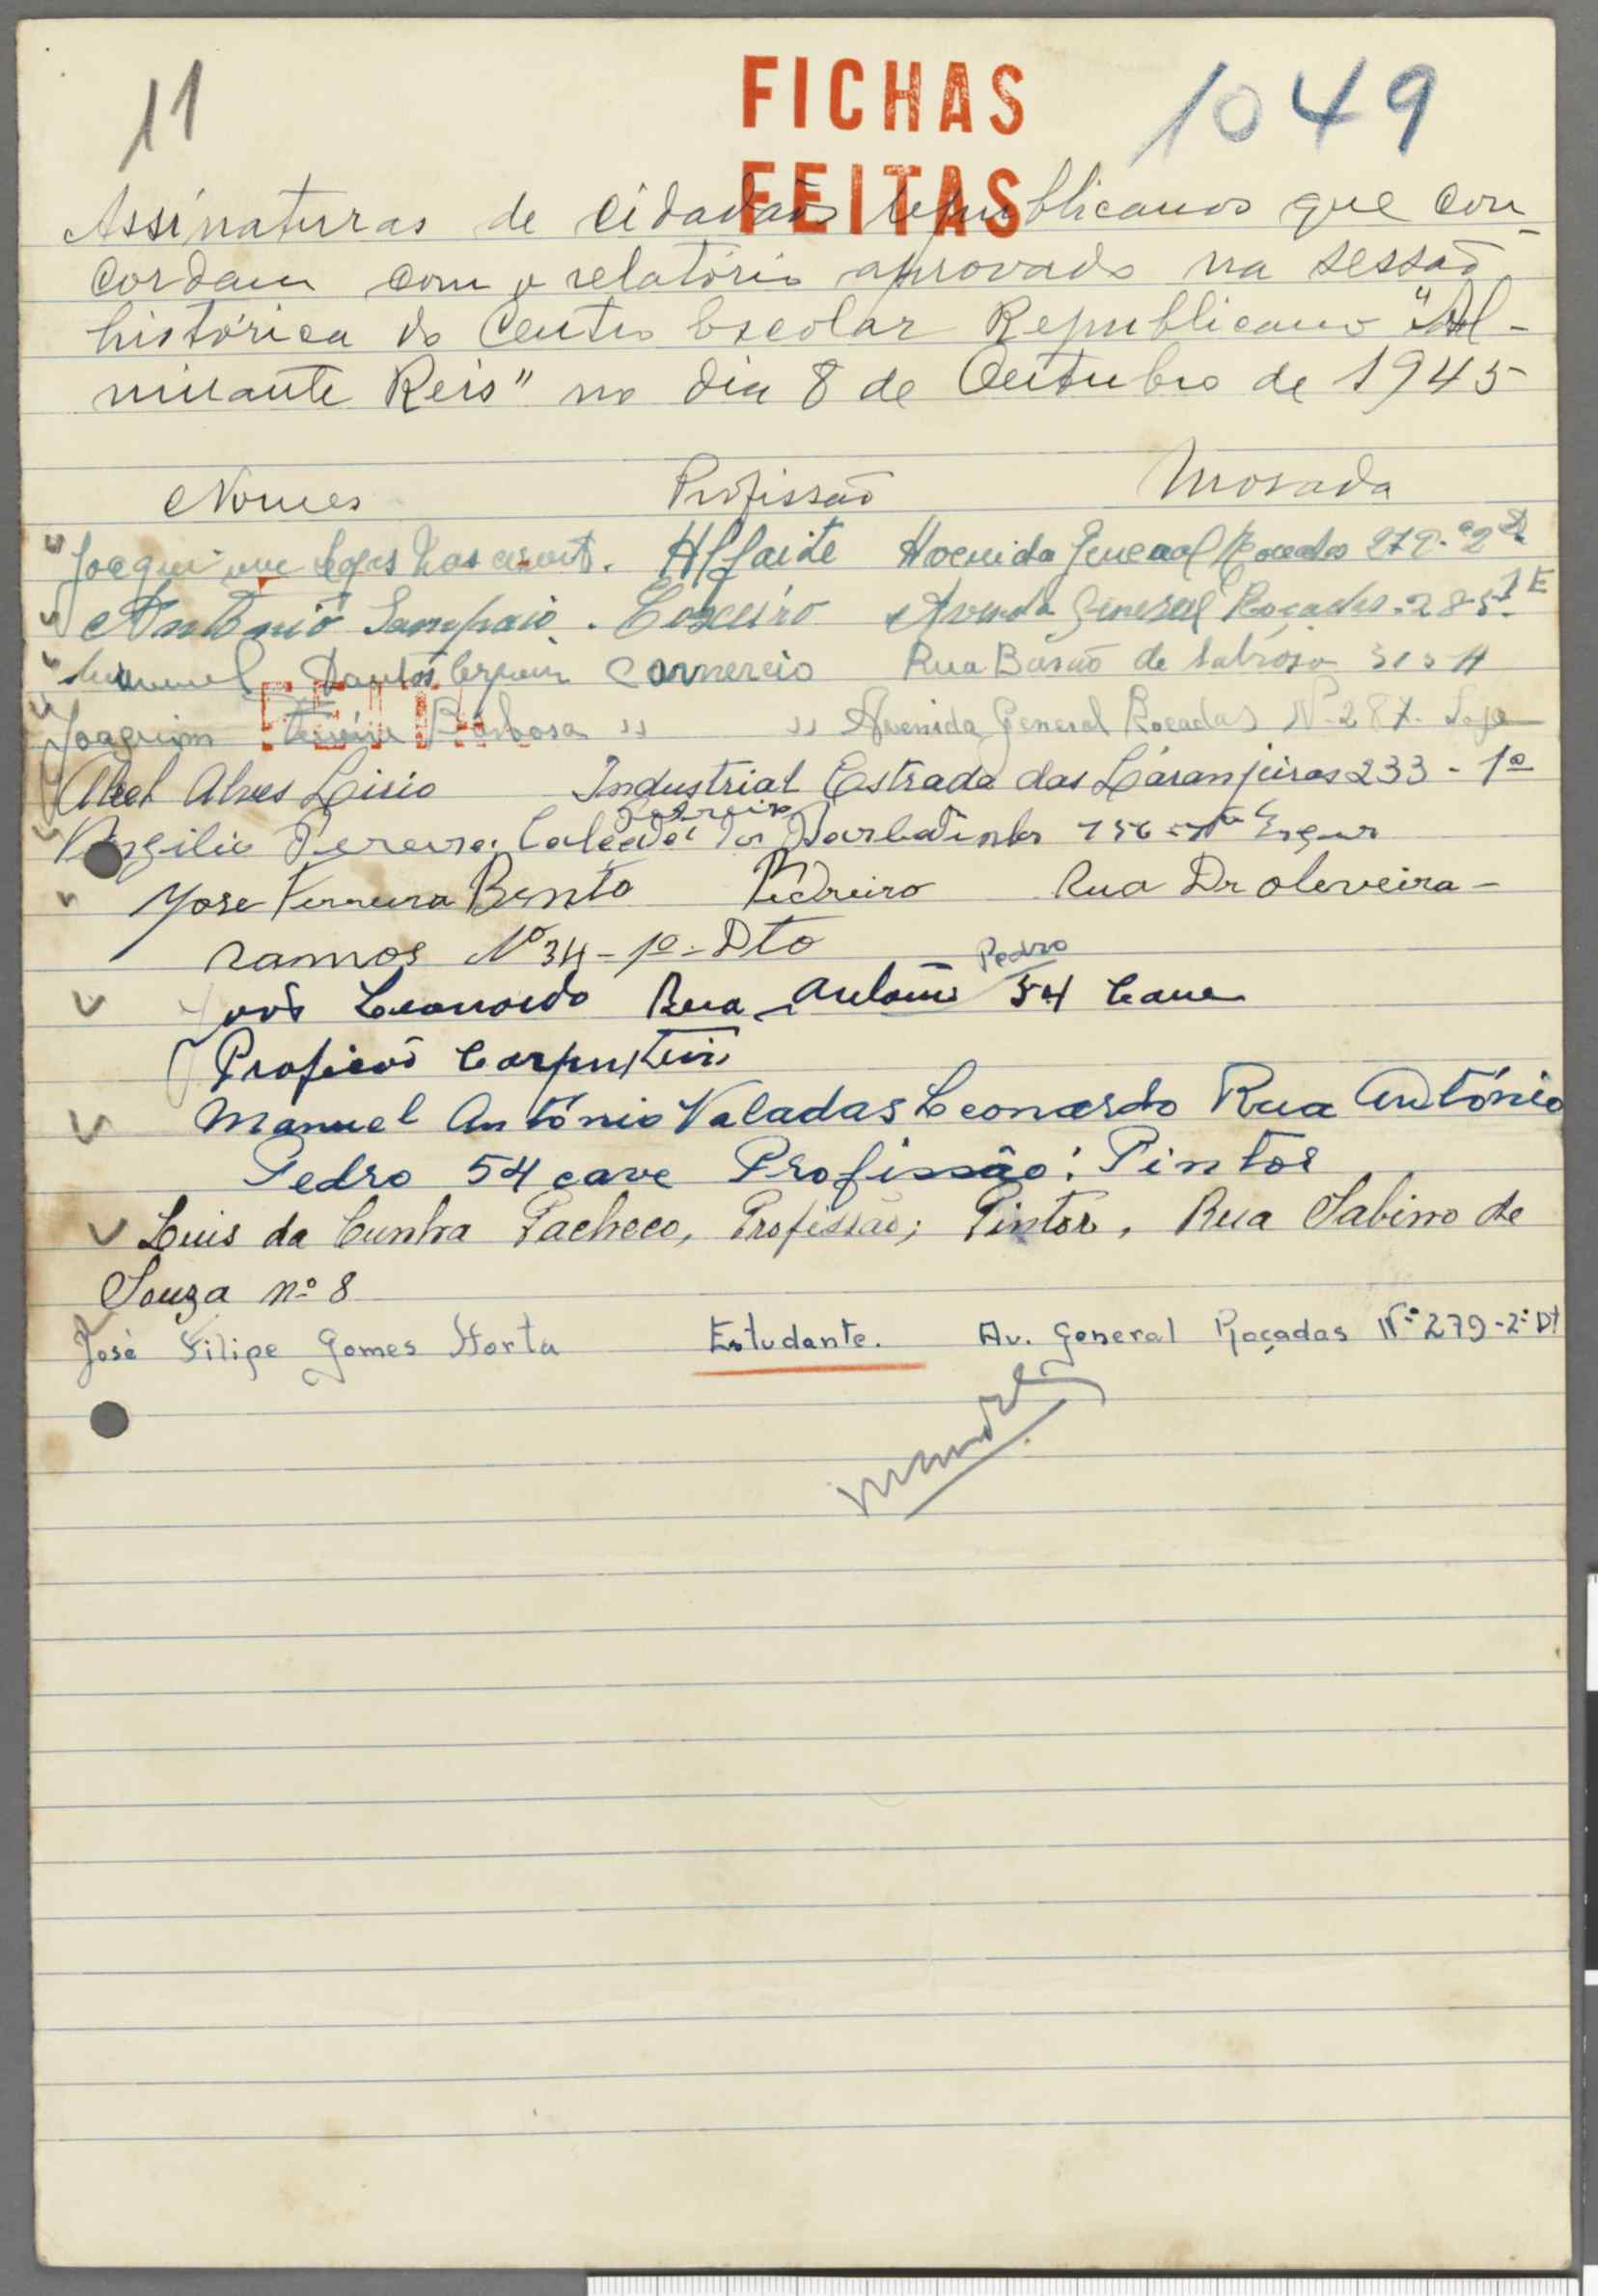 11
FICHAS
FEITAS
1049
Assinaturas de cidadãos republicanos que con-
cordam com o relatório aprovado na sessão
histórica do Centro Escolar Republicano "Al-
mirante Reis" no dia 8 de Outubro de 1945
Nomes Profissão Morada
Joaquim Alfaite Avenida General Roçadas 279-2º
António Sampaio. Avenida General Roçadas. 285-1 E
Manuel Santos Comercio Rua Barão de Sabrosa
Joaquim Barbosa " " Avenida General Roçadas Nº 287. Loja
FEITA
Abel Alves Lirio Industrial Estrada das Laranjeiras 233-1º
Pedreiro
Virgilio Pereira Calçada dos Barbadinhos 156
Jose Ferreira Bento Pedreiro Rua Dr Oleveira-
Ramos Nº 34-1º-Dto
Pedro
José Leonardo Rua António 54 Cave
Proficão Carpinteiro
Manuel António Valadas Leonardo Rua António
Pedro 54 cave Profissão: Pintor
Luis da Cunha Pacheco, Profissão; Pintor, Rua Sabino de
Souza nº 8
José Filipe Gomes Horta Estudante. Av. General Roçadas Nº 279-2º Dt